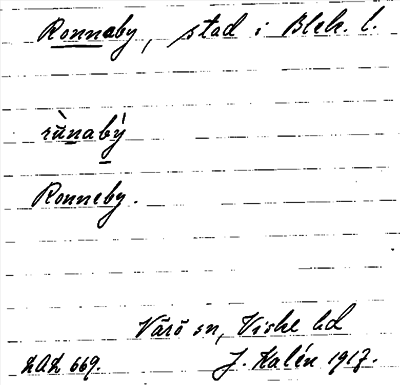 Ronnaby, stad i Blek. l.
rùnabý
Ronneby.
Värö sn, Viske hd
LAL 669. J. Kalén 1917.